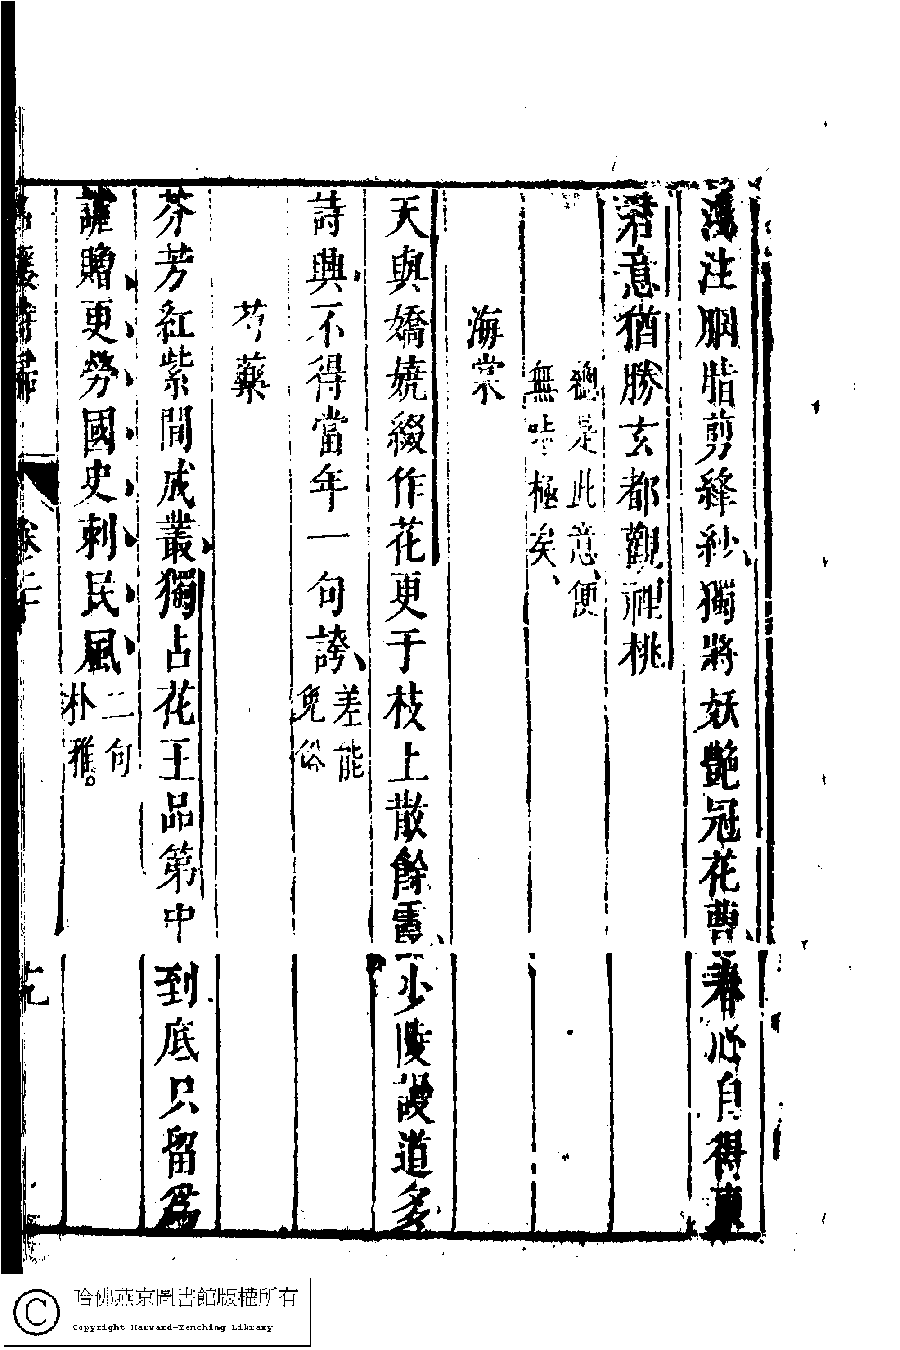 滿注胭脂剪絳紗獨將妖艷冠花曹春心自得東
君意猶勝玄都觀裡桃
總是此意便
無味極矣
海棠
天與嬌嬈綴作花更于枝上散餘霞少陵謾道多
詩興不得當年一句誇
差能
免俗
芍藥
芬芳紅紫間成叢獨占花王品第中到底只留爲
謔贈更勞國史刺民風
二句
朴雅。
哈佛燕京圖書館版權所有
Copyright Harvard-Yenching Library